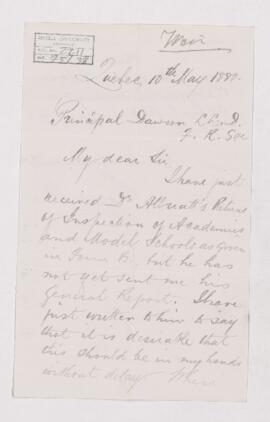 Weir
McGILL UNIVERSITY
ACC. NO.
REF.
Quebec, 10th May 1880.
Principal Dawson LL.D.
F. R. S &c
My dear Sir
I have just
received Dr Allnatt's Return
of Inspection of Academies
and Model Schools as given
in Form B. but he has
not yet sent me his
General Report. I have
just written to him to say
that it is desirable that
this should be in my hands
without delay. When